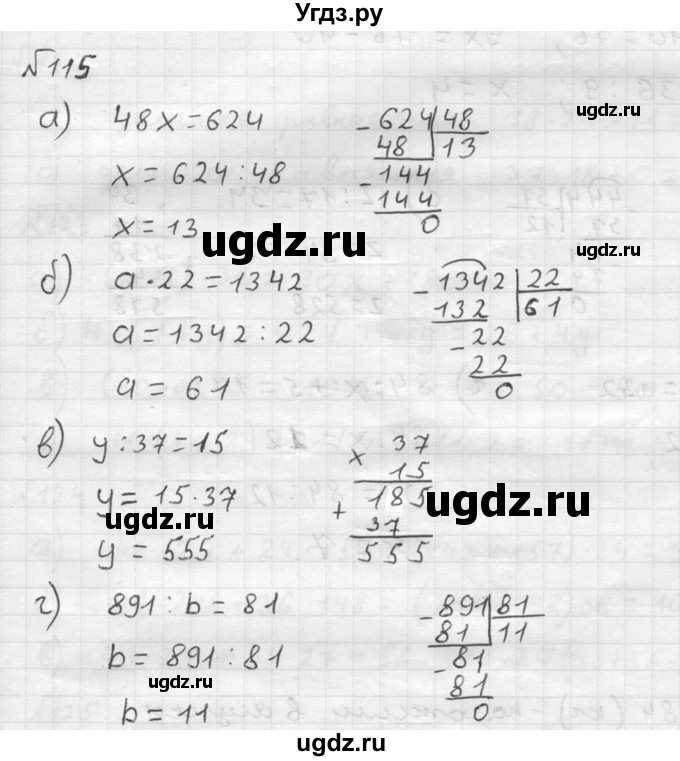 Угдз.ру
№115
а) 48x=624
x=624:48
x=13
624 48
48 13
144
144
0
ugdz.ru
ugdz.ru
ugdz.ru
ugdz.ru
б) a·22=1342
a=1342:22
a=61
1342 22
132 61
22
22
0
в) y:37=15
y=15·37
y=555
37
× 15
185
+ 37
555
ugdz.ru
ugdz.ru
г) 891:b=81
b=891:81
b=11
891 81
81 11
81
81
0
ugdz.ru
ugdz.ru
ugdz.ru